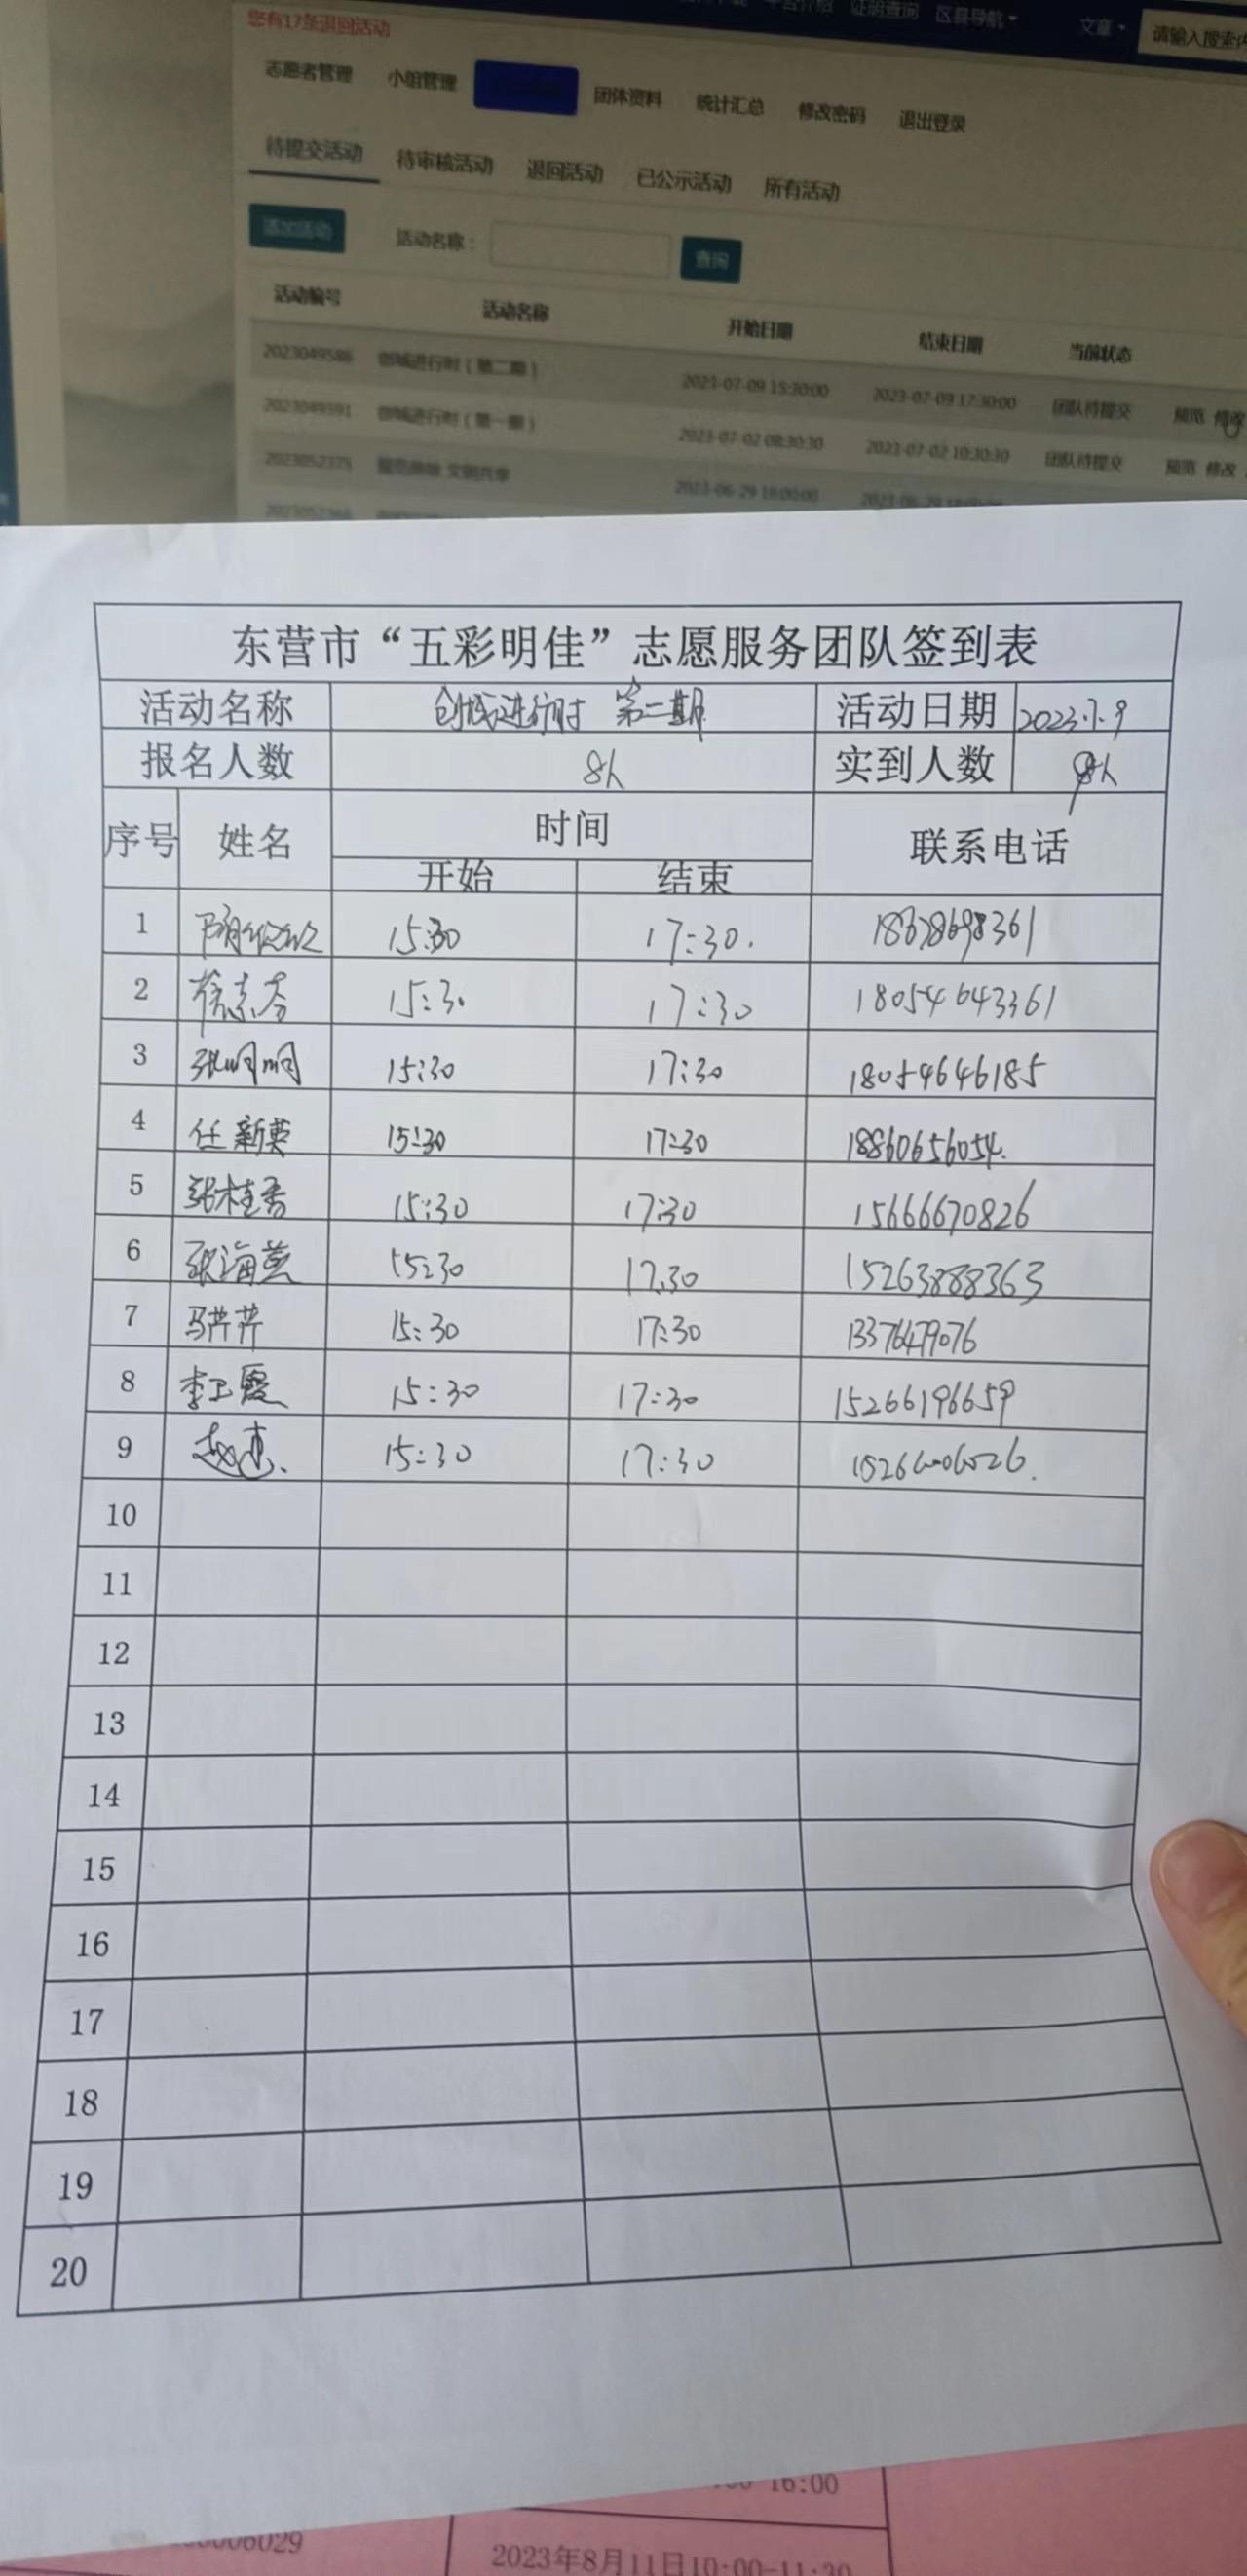 您有17条退回活动
证明查询 区县导航 文章 请输入搜索内
志愿者管理 小组管理 团体资料 统计汇总 修改密码 退出登录
待提交活动 待审核活动 退回活动 已公示活动 所有活动
添加活动 活动名称： 查询
活动编号 活动名称 开始日期 结束日期 当前状态
2023049586 创城进行时（第二期） 2023-07-09 15:30:00 2023-07-09 17:30:00 团队待提交 预览 修改
2023049591 创城进行时（第一期） 2023-07-02 08:30:30 2023-07-02 10:30:30 团队待提交 预览 修改
2023052375 文明共享 2023-06-29 16:00:00
东营市“五彩明佳”志愿服务团队签到表
活动名称 创城进行时 第二期 活动日期 2023.7.9
报名人数 8人 实到人数 9人
序号 姓名 时间 联系电话
开始 结束
1 15:30 17:30.
2 15:30 17:30 18054643361
3 张明明 15:30 17:30 18054646185
4 任新英 15:30 17:30 18860656054.
5 张桂香 15:30 17:30 15666670826
6 张海燕 15:30 17:30 15263888363
7 马芹芹 15:30 17:30 13376479076
8 李卫霞 15:30 17:30 15266196659
9 15:30 17:30
10
11
12
13
14
15
16
17
18
19
20
16:00
006029
2023年8月11日10:00-11:30